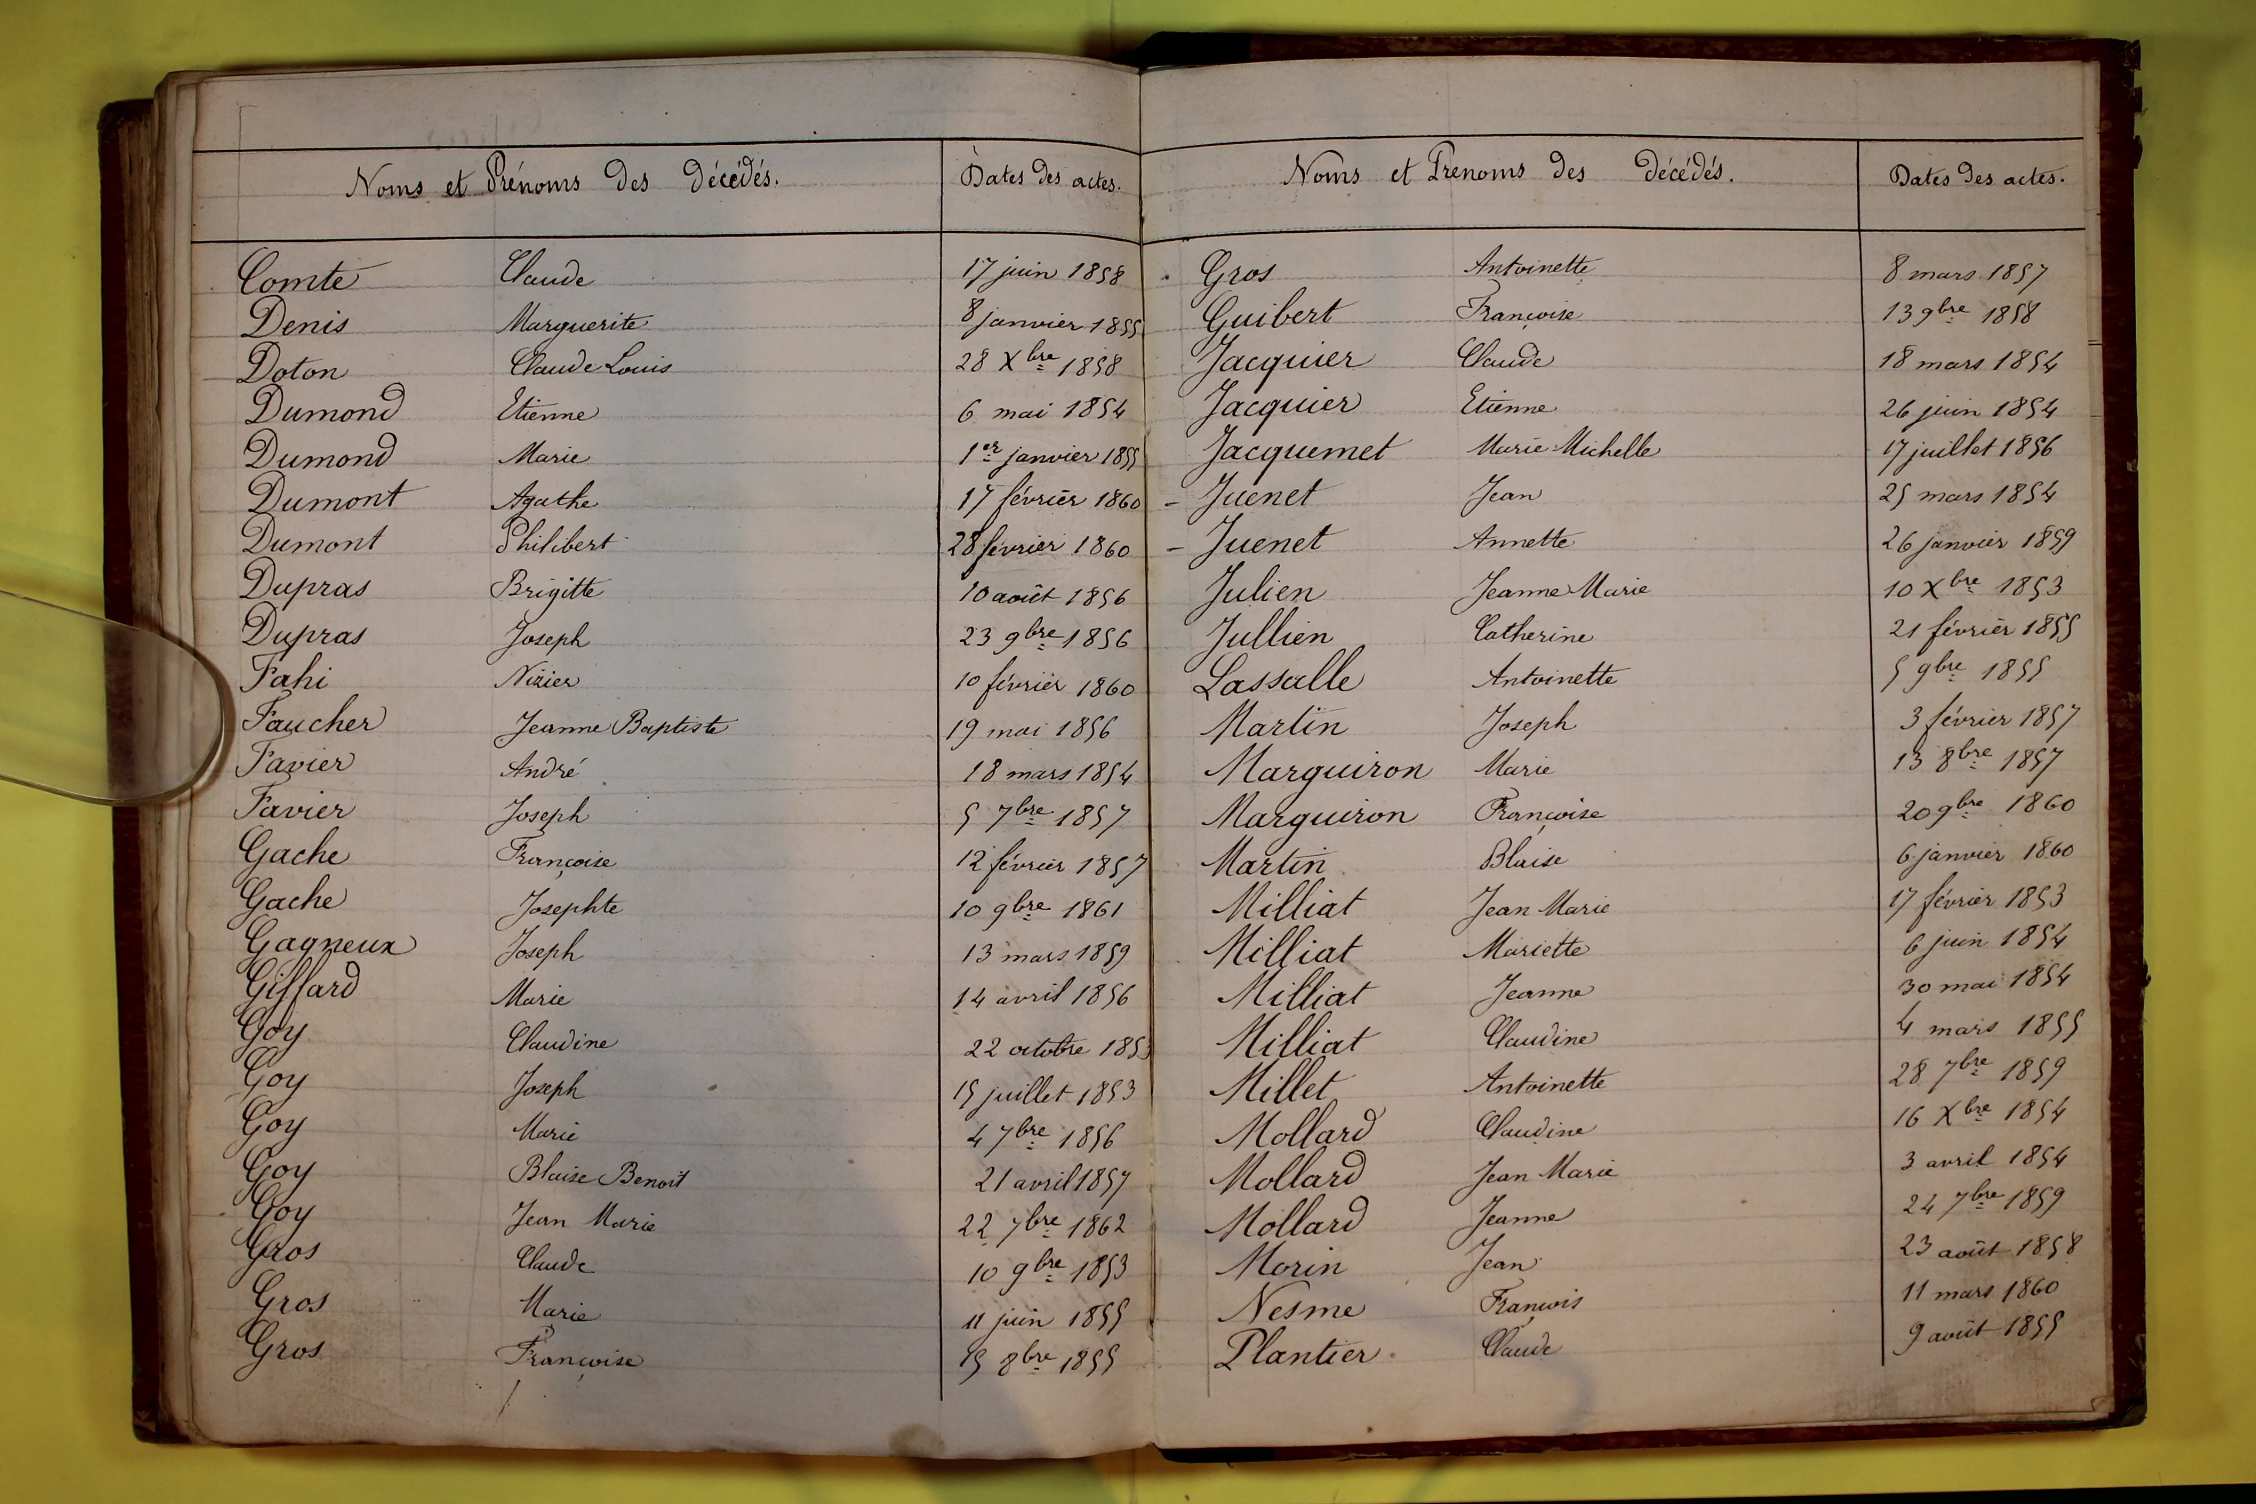 Noms et Prénoms des décédés. Dates des actes.
Comte Claude 17 juin 1858
Denis Marguerite 8 janvier 1855
Doton Claude Louis 28 Xbre 1858
Dumond Etienne 6 mai 1854
Dumond Marie 1er janvier 1855
Dumont Agathe 17 février 1860
Dumont Philibert 28 février 1860
Dupras Brigitte 10 août 1856
Dupras Joseph 23 9bre 1856
Fahi Nizier 10 février 1860
Faucher Jeanne Baptiste 19 mai 1856
Favier André 18 mars 1854
Favier Joseph 5 7bre 1857
Gache Françoise 12 février 1857
Gache Josephte 10 9bre 1861
Gagneux Joseph 13 mars 1859
Giffard Marie 14 avril 1856
Goy Claudine 22 octobre 1853
Goy Joseph 15 juillet 1853
Goy Marie 4 7bre 1856
Goy Blaise Benoit 21 avril 1857
Goy Jean Marie 22 7bre 1862
Gros Claude 10 9bre 1853
Gros Marie 11 juin 1855
Gros Françoise 15 8bre 1855
Noms et Prenoms des décédés. Dates des actes.
Gros Antoinette 8 mars 1857
Guibert Françoise 13 9bre 1858
Jacquier Claude 18 mars 1854
Jacquier Etienne 26 juin 1854
Jacquemet Marie Michelle 17 juillet 1856
- Juenet Jean 25 mars 1854
- Juenet Annette 26 janvier 1859
Julien Jeanne Marie 10 Xbre 1853
Jullien Catherine 21 février 1855
Lassalle Antoinette 5 9bre 1855
Martin Joseph 3 février 1857
Marguiron Marie 13 8bre 1857
Marguiron Françoise 20 9bre 1860
Martin Blaise 6 janvier 1860
Milliat Jean Marie 17 février 1853
Milliat Mariette 6 juin 1854
Milliat Jeanne 30 mai 1854
Milliat Claudine 4 mars 1855
Millet Antoinette 28 7bre 1859
Mollard Claudine 16 Xbre 1854
Mollard Jean Marie 3 avril 1854
Mollard Jeanne 24 7bre 1859
Morin Jean 23 août 1858
Nesme François 11 mars 1860
Plantier Claude 9 août 1855